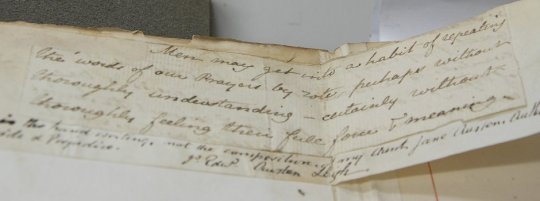 Men may get into a habit of repeating
the words of our Prayers by rote, perhaps without
thoroughly understanding – certainly without
thoroughly feeling their full force & meaning.
in the hand writing, not the composition, of my Aunt Jane Austen, Auth
& Prejudice.
Austen Leigh